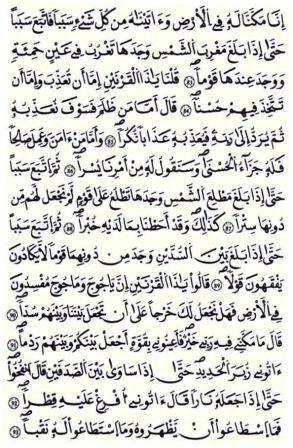 إِنَّا مَكَّنَّا لَهُۥ فِي الْأَرْضِ وَءَاتَيْنَٰهُ مِن كُلِّ شَيْءٍ سَبَبًا فَاتَّبَعَ سَبَبًا
حَتَّىٰ إِذَا بَلَغَ مَغْرِبَ الشَّمْسِ وَجَدَهَا تَغْرُبُ فِي عَيْنٍ حَمِئَةٍ
وَوَجَدَ عِندَهَا قَوْمًا ٨٣ قُلْنَا يَٰذَا الْقَرْنَيْنِ إِمَّا أَن تُعَذِّبَ وَإِمَّا أَن
تَتَّخِذَ فِيهِمْ حُسْنًا ٨٤ قَالَ أَمَّا مَن ظَلَمَ فَسَوْفَ نُعَذِّبُهُۥ
ثُمَّ يُرَدُّ إِلَىٰ رَبِّهِۦ فَيُعَذِّبُهُۥ عَذَابًا نُّكُرًا ٨٥ وَأَمَّا مَنْ ءَامَنَ وَعَمِلَ صَٰلِحًا
فَلَهُۥ جَزَآءُ الْحُسْنَىٰ وَسَنَقُولُ لَهُۥ مِنْ أَمْرِنَا يُسْرًا ٨٦ ثُمَّ اتَّبَعَ سَبَبًا
حَتَّىٰ إِذَا بَلَغَ مَطْلِعَ الشَّمْسِ وَجَدَهَا تَطْلُعُ عَلَىٰ قَوْمٍ لَّمْ نَجْعَل لَّهُم مِّن
دُونِهَا سِتْرًا ٨٧ كَذَٰلِكَ وَقَدْ أَحَطْنَا بِمَا لَدَيْهِ خُبْرًا ٨٨ ثُمَّ اتَّبَعَ سَبَبًا
حَتَّىٰ إِذَا بَلَغَ بَيْنَ السُّدَّيْنِ وَجَدَ مِن دُونِهِمَا قَوْمًا لَّا يَكَادُونَ
يَفْقَهُونَ قَوْلًا ٨٩ قَالُوا يَٰذَا الْقَرْنَيْنِ إِنَّ يَاجُوجَ وَمَاجُوجَ مُفْسِدُونَ
فِي الْأَرْضِ فَهَلْ نَجْعَلُ لَكَ خَرْجًا عَلَىٰ أَن تَجْعَلَ بَيْنَنَا وَبَيْنَهُمْ سُدًّا ٩٠
قَالَ مَا مَكَّنِّي فِيهِ رَبِّي خَيْرٌ فَأَعِينُونِي بِقُوَّةٍ أَجْعَلْ بَيْنَكُمْ وَبَيْنَهُمْ رَدْمًا ٩١
ءَاتُونِي زُبَرَ الْحَدِيدِ حَتَّىٰ إِذَا سَاوَىٰ بَيْنَ الصَّدَفَيْنِ قَالَ انفُخُوا
حَتَّىٰ إِذَا جَعَلَهُۥ نَارًا قَالَ ءَاتُونِي أُفْرِغْ عَلَيْهِ قِطْرًا ٩٢
فَمَا اسْطَٰعُوا أَن يَظْهَرُوهُ وَمَا اسْتَطَٰعُوا لَهُۥ نَقْبًا ٩٣